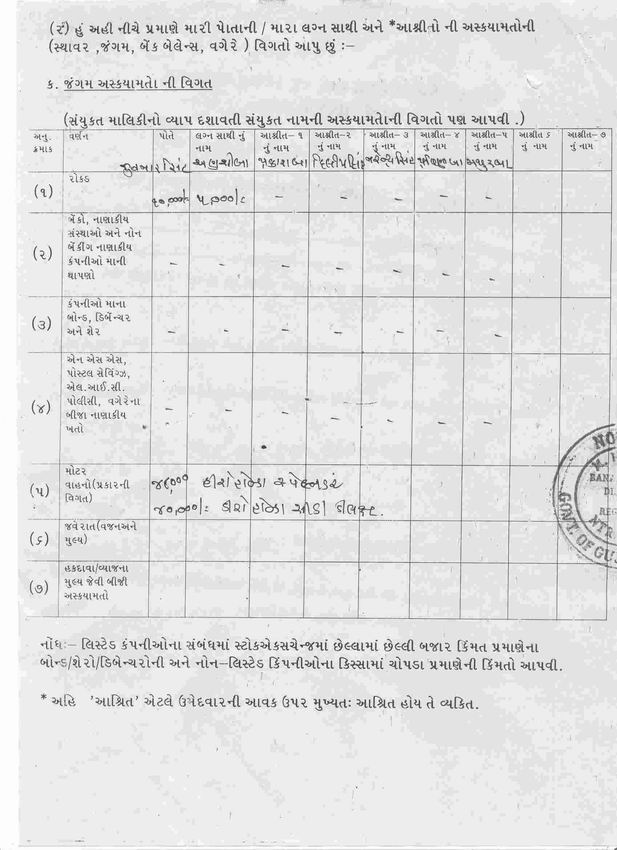 (૨) હું અહી નીચે પ્રમાણે મારી પોતાની / મારા લગ્ન સાથી અને *આશ્રીતો ની અસ્કયામતોની
(સ્થાવર ,જંગમ, બેંક બેલેન્સ, વગેરે ) વિગતો આપુ છું :–
ક. જંગમ અસ્કયામતો ની વિગત
(સંયુકત માલિકીનો વ્યાપ દશાવતી સંયુકત નામની અસ્કયામતોની વિગતો પણ આપવી .)
અનુ. વર્ણન પોતે લગ્ન સાથી નું આશ્રીત– ૧ આશ્રીત–૨ આશ્રીત– ૩ આશ્રીત– ૪ આશ્રીત–૫ આશ્રીત ૬ આશ્રીત– ૭
ક્રમાક નામ નું નામ નું નામ નું નામ નું નામ નું નામ નું નામ નું નામ
(૧) રોકડ
૧૦,૦૦૦/- ૫,૦૦૦/- – – – – –
(૨) બેંકો, નાણાકીય
સંસ્થાઓ અને નોન
બેંકીંગ નાણાકીય
કંપનીઓ માની
થાપણો – – – – – – –
(૩) કંપનીઓ માના
બોન્ડ, ડિબેન્ચર
અને શેર – – – – – – –
(૪) એન એસ એસ,
પોસ્ટલ સેવિંગ્ઝ,
એલ.આઈ.સી.
પોલીસી, વગેરેના
બીજા નાણાકીય
ખતો – – – – – – –
(૫) મોટર
વાહનો(પ્રકારની
વિગત)
હીરો હોન્ડા
૪૦,૦૦૦/: હીરો હોન્ડા સીડી ડીલક્ષ.
(૬) જવેરાત(વજનઅને
મુલ્ય)
(૭) હકદાવા/વ્યાજના
મુલ્ય જેવી બીજી
અસ્કયામતો
NO
BAN
DI
REG
NTR
GOVT. OF GUJ
નોંધ:– લિસ્ટેડ કંપનીઓના સંબંધમાં સ્ટોકએકસચેન્જમાં છેલ્લામાં છેલ્લી બજાર કિંમત પ્રમાણેના
બોન્ડ/શેરો/ડિબેન્ચરોની અને નોન–લિસ્ટેડ કિંપનીઓના કિસ્સામાં ચોપડા પ્રમાણેની કિંમતો આપવી.
* અહિ 'આશ્રિત' એટલે ઉમેદવારની આવક ઉપર મુખ્યતઃ આશ્રિત હોય તે વ્યકિત.